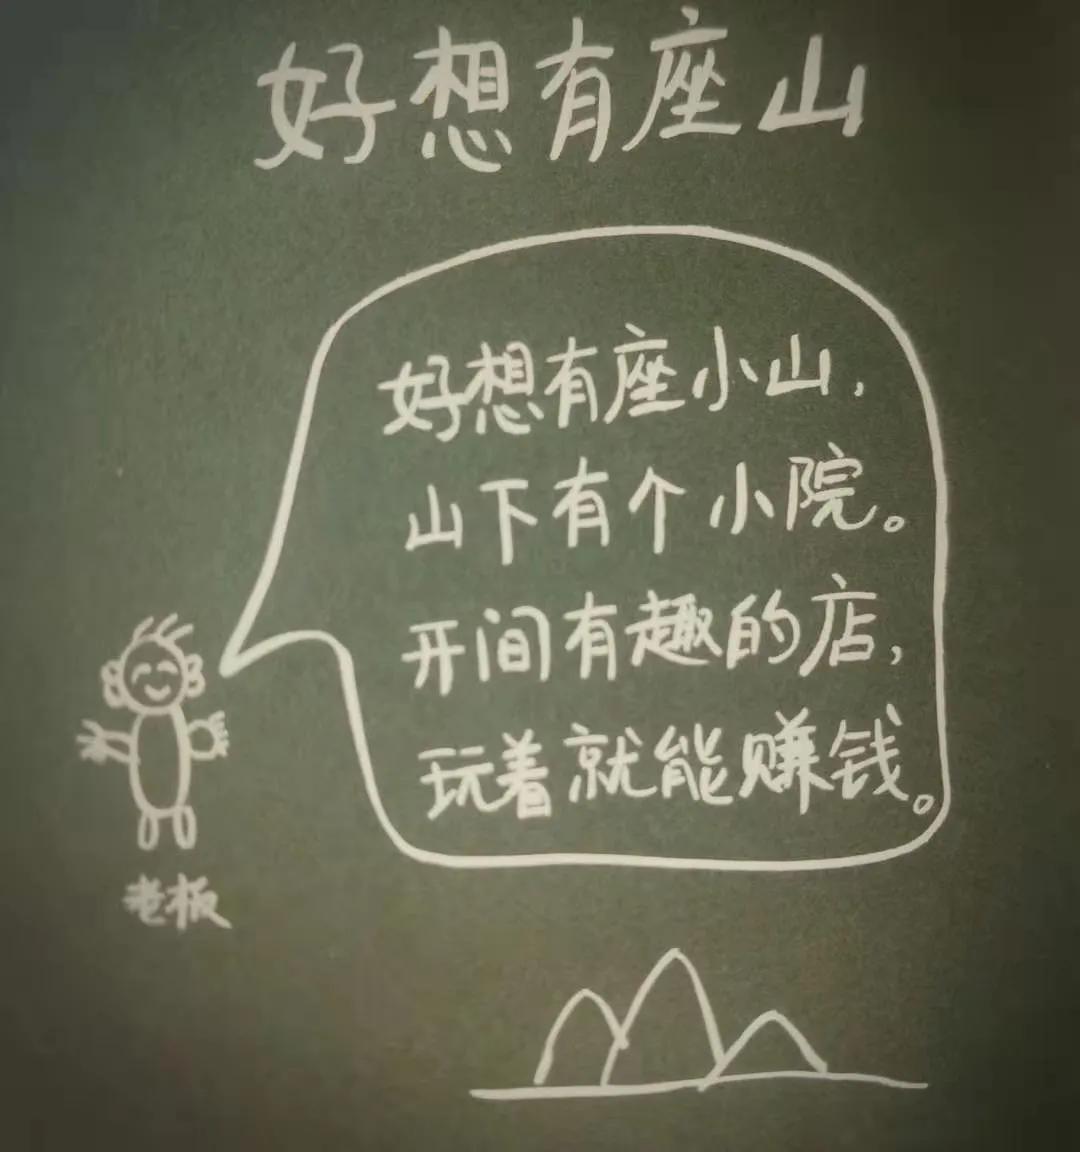 好想有座山
好想有座小山,
山下有个小院。
开间有趣的店,
玩着就能赚钱。
老板